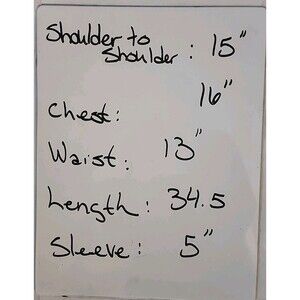 Shoulder to
Shoulder : 15"
Chest: 16"
Waist: 13"
Length: 34.5
Sleeve: 5"